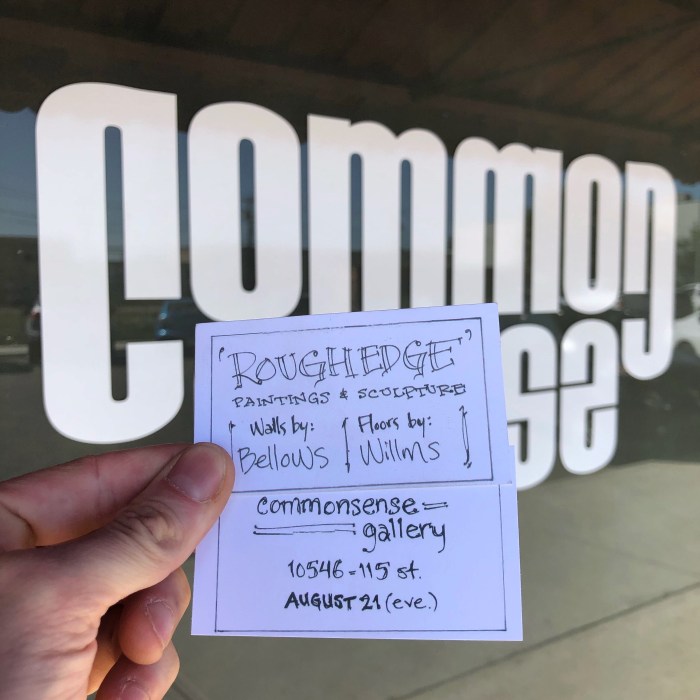 Common
se
'ROUGH EDGE'
PAINTINGS & SCULPTURE
Walls by: Floors by:
Bellows Willms
commonsense
gallery
10546-115 st.
AUGUST 21 (eve.)